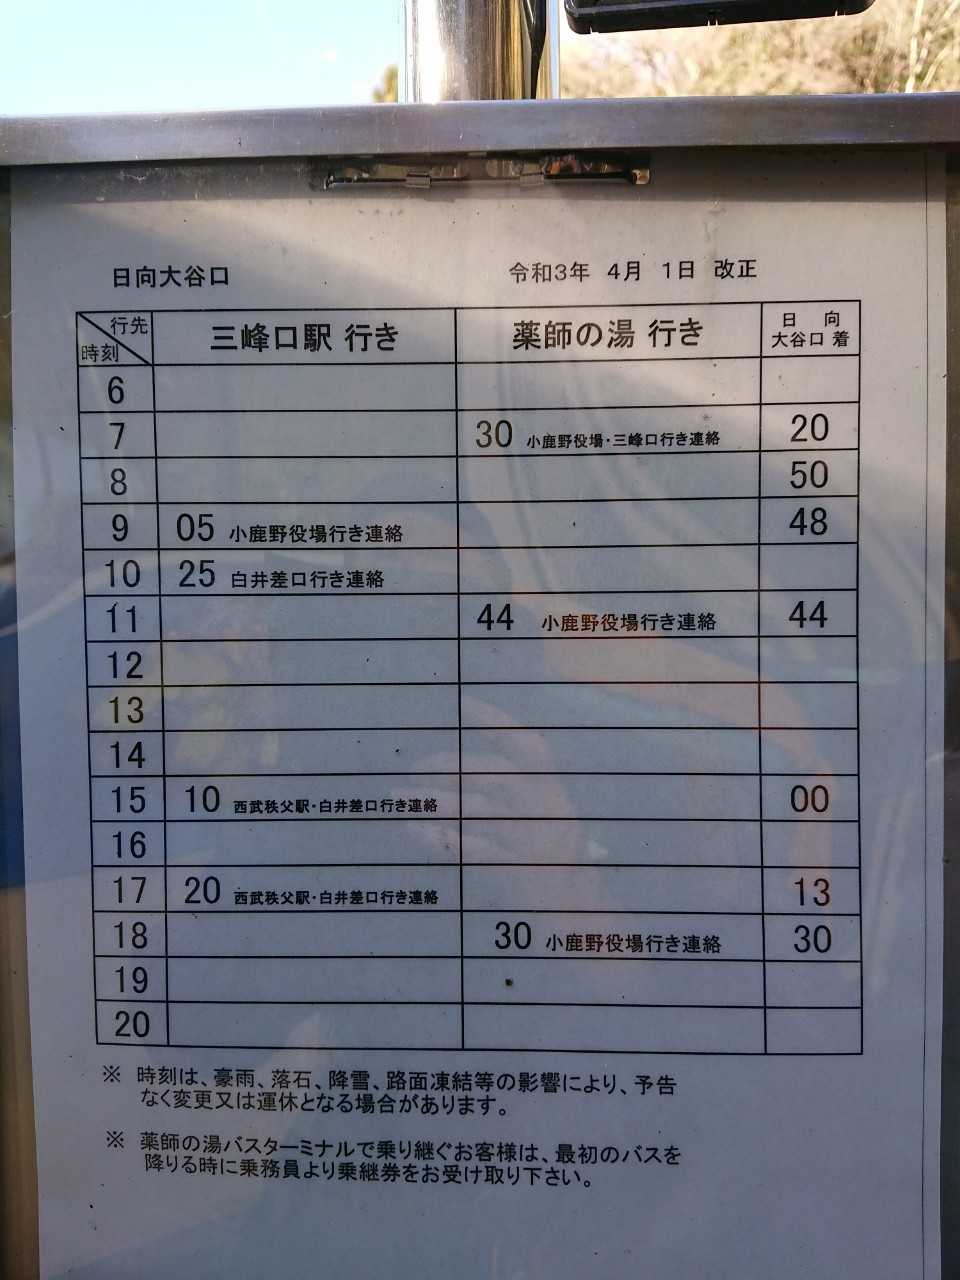 日向大谷口
令和3年 4月 1日 改正
行先
時刻
三峰口駅 行き
薬師の湯 行き
日 向
大谷口 着
6
7 30 小鹿野役場・三峰口行き連絡 20
8 50
9 05 小鹿野役場行き連絡 48
10 25 白井差口行き連絡
11 44 小鹿野役場行き連絡 44
12
13
14
15 10 西武秩父駅・白井差口行き連絡 00
16
17 20 西武秩父駅・白井差口行き連絡 13
18 30 小鹿野役場行き連絡 30
19
20
※ 時刻は、豪雨、落石、降雪、路面凍結等の影響により、予告
なく変更又は運休となる場合があります。
※ 薬師の湯バスターミナルで乗り継ぐお客様は、最初のバスを
降りる時に乗務員より乗継券をお受け取り下さい。